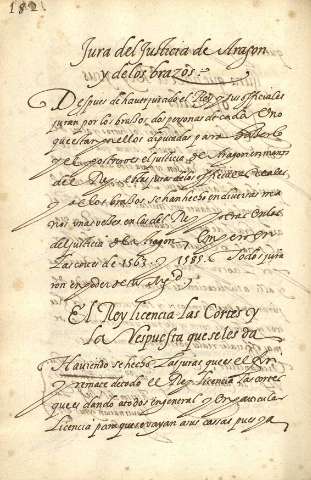 182
Jura del Justicia de Aragon
y de los brazos.
Despues de hauer jurado el Rey y sus officiales
juran por los brassos dos personas de cada Uno
que estan por ellos diputadas para hazerlo
y el postrero es el justicia de Aragon en manos
del Rey, estas juras de los officiales reales,
y de los brassos se han hecho en diuersas ma
neras unas veses en las del Rey y otras en las
del justicia de Aragon, y en
las cortes de 1563. y 1585. todos jura
ron en poder de su Mag.d
El Rey licencia las Cortes y
la Respuesta que se les da
Hauiendo se hecho las juras que es el fin
y remate de todo el Rey licencia las cortes
que es dando a todos en general y en particular
licencia para que se vayan a sus cassas pues ya